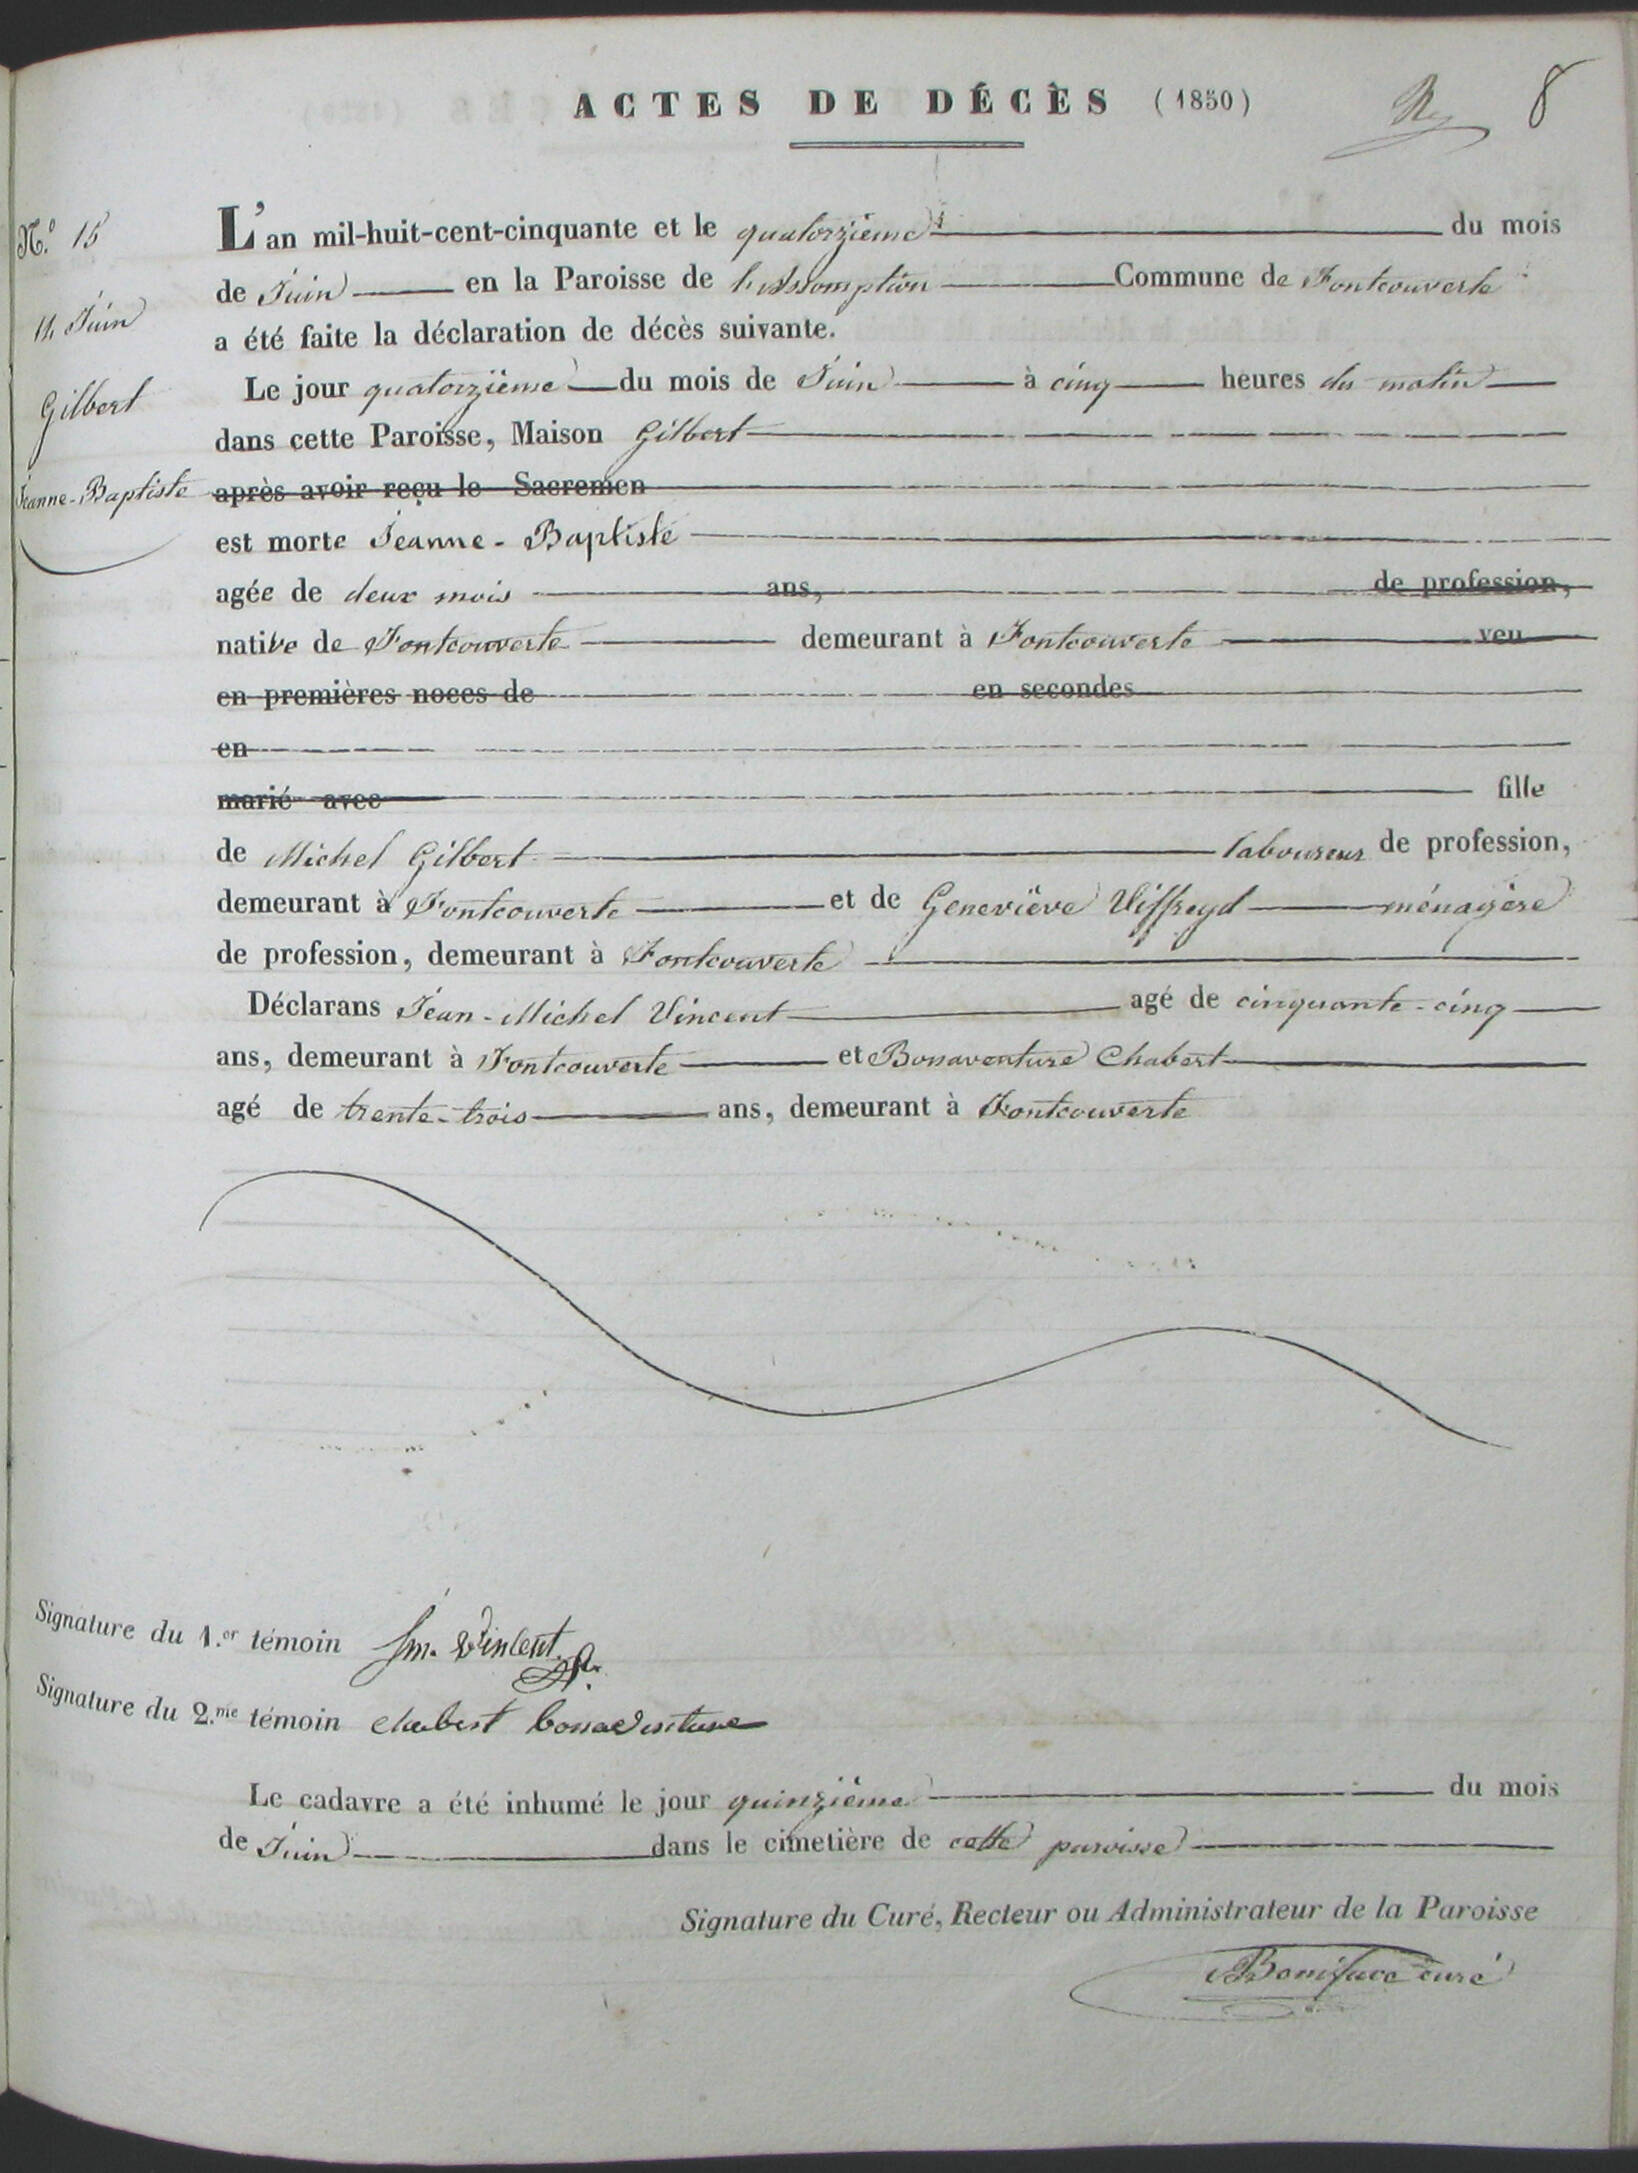 ACTES DE DÉCÈS (1850)
8
N.º 15
14 Juin
Gilbert
Jeanne-Baptiste
L'an mil-huit-cent-cinquante et le quatorzième du mois
de Juin en la Paroisse de l'Assomption Commune de Fontcouverte
a été faite la déclaration de décès suivante.
Le jour quatorzième du mois de Juin à cinq heures du matin
dans cette Paroisse, Maison Gilbert
après avoir reçu le Sacremen
est morte Jeanne-Baptiste
agée de deux mois ans, de profession,
native de Fontcouverte demeurant à Fontcouverte veu
en premières noces de en secondes
en
marié avec fille
de Michel Gilbert laboureur de profession,
demeurant à Fontcouverte et de Geneviève Viffreyd ménagère
de profession, demeurant à Fontcouverte
Déclarans Jean-Michel Vincent agé de cinquante-cinq
ans, demeurant à Fontcouverte et Bonaventure Chabert
agé de trente-trois ans, demeurant à Fontcouverte
Signature du 1.er témoin Jm. Vincent
Signature du 2.me témoin chabert bonaventure
Le cadavre a été inhumé le jour quinzième du mois
de Juin dans le cimetière de cette paroisse
Signature du Curé, Recteur ou Administrateur de la Paroisse
Boniface curé